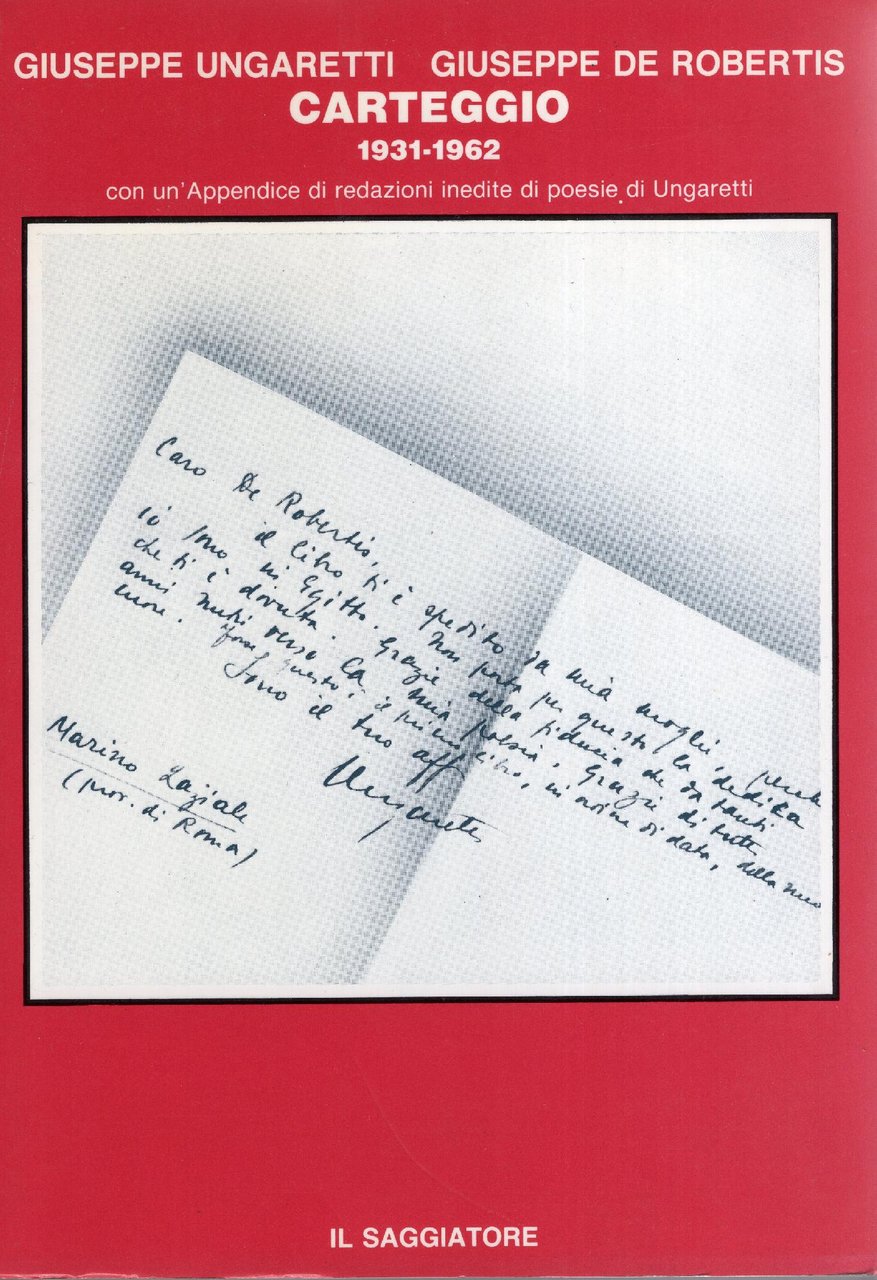 GIUSEPPE UNGARETTI GIUSEPPE DE ROBERTIS
CARTEGGIO
1931-1962
con un'Appendice di redazioni inedite di poesie di Ungaretti
Caro De Robertis,
il libro ti è spedito da mia moglie, perché
io sono in Egitto. Non porta per questo la dedica
che ti è dovuta. Grazie della fiducia che da tanti
anni nutri verso la mia poesia. Grazie di tutto
cuore. questo, il primo libro, in ordine di data, della
Sono il tuo aff
Ungaretti
Marino Laziale
(prov. di Roma)
IL SAGGIATORE